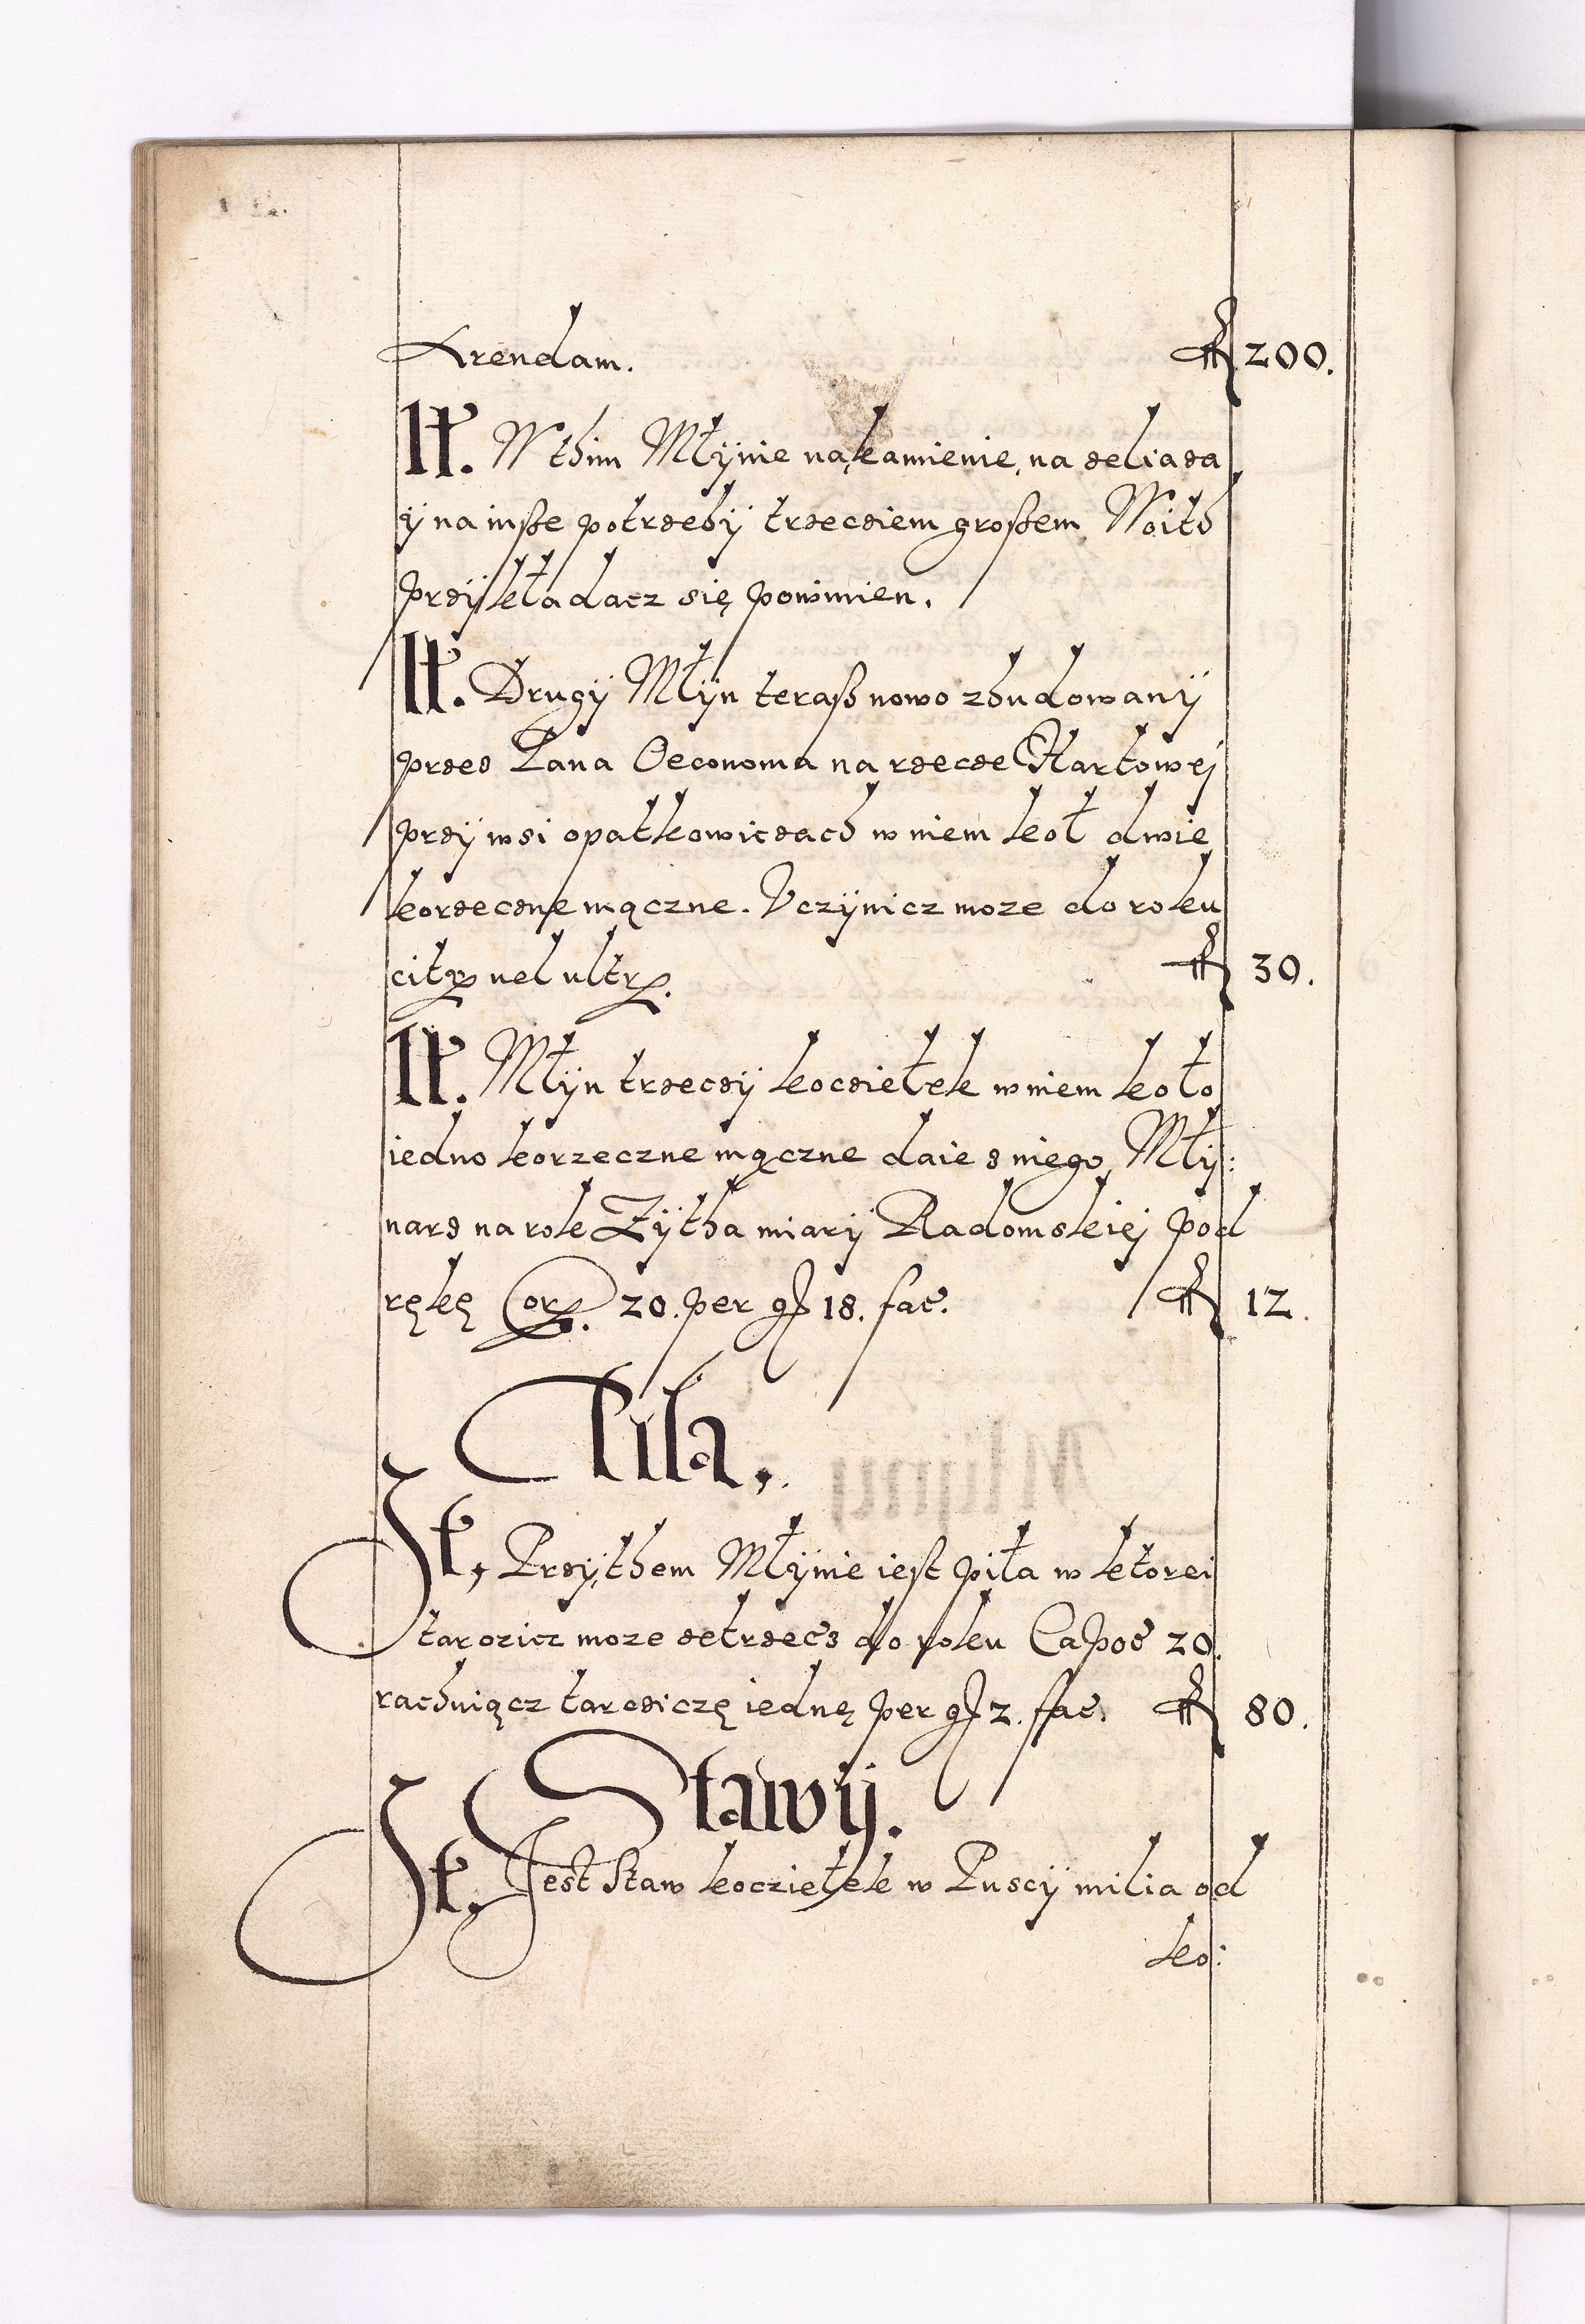 Arendam. fl 200.
It. W thim Młÿnie na kamienie, na zeliaza
ÿ na insze potrzebÿ trzecziem groszem Woith
przÿkładacz się powinien.
It. Drugÿ Młÿn terasz nowo zbudowanÿ
przez Pana Oeconoma na rzecze Kartowej
przÿ wsi opatkowiczach w niem koł dwie
korzeczne mączne. Vczÿnicz moze do roku
citra vel ultra. fl 30.
It. Młÿn trzeczÿ kocziełek w niem koło
iedno korzeczne mączne daie z niego Młÿ:
narz na rok Zÿtha miarÿ Radomskiej pod
rękę Cor. 20. per gr 18. fac. fl 12.
Piła.
It, Przÿ them Młÿnie iest piła w ktorei
tarczicz moze zetrzecz do roku Capos 20.
rachuiącz tarcziczę iednę per gr 2. fac. fl 80.
Stawÿ.
It. Jest Staw kocziełek w Puscÿ milia od
ko: